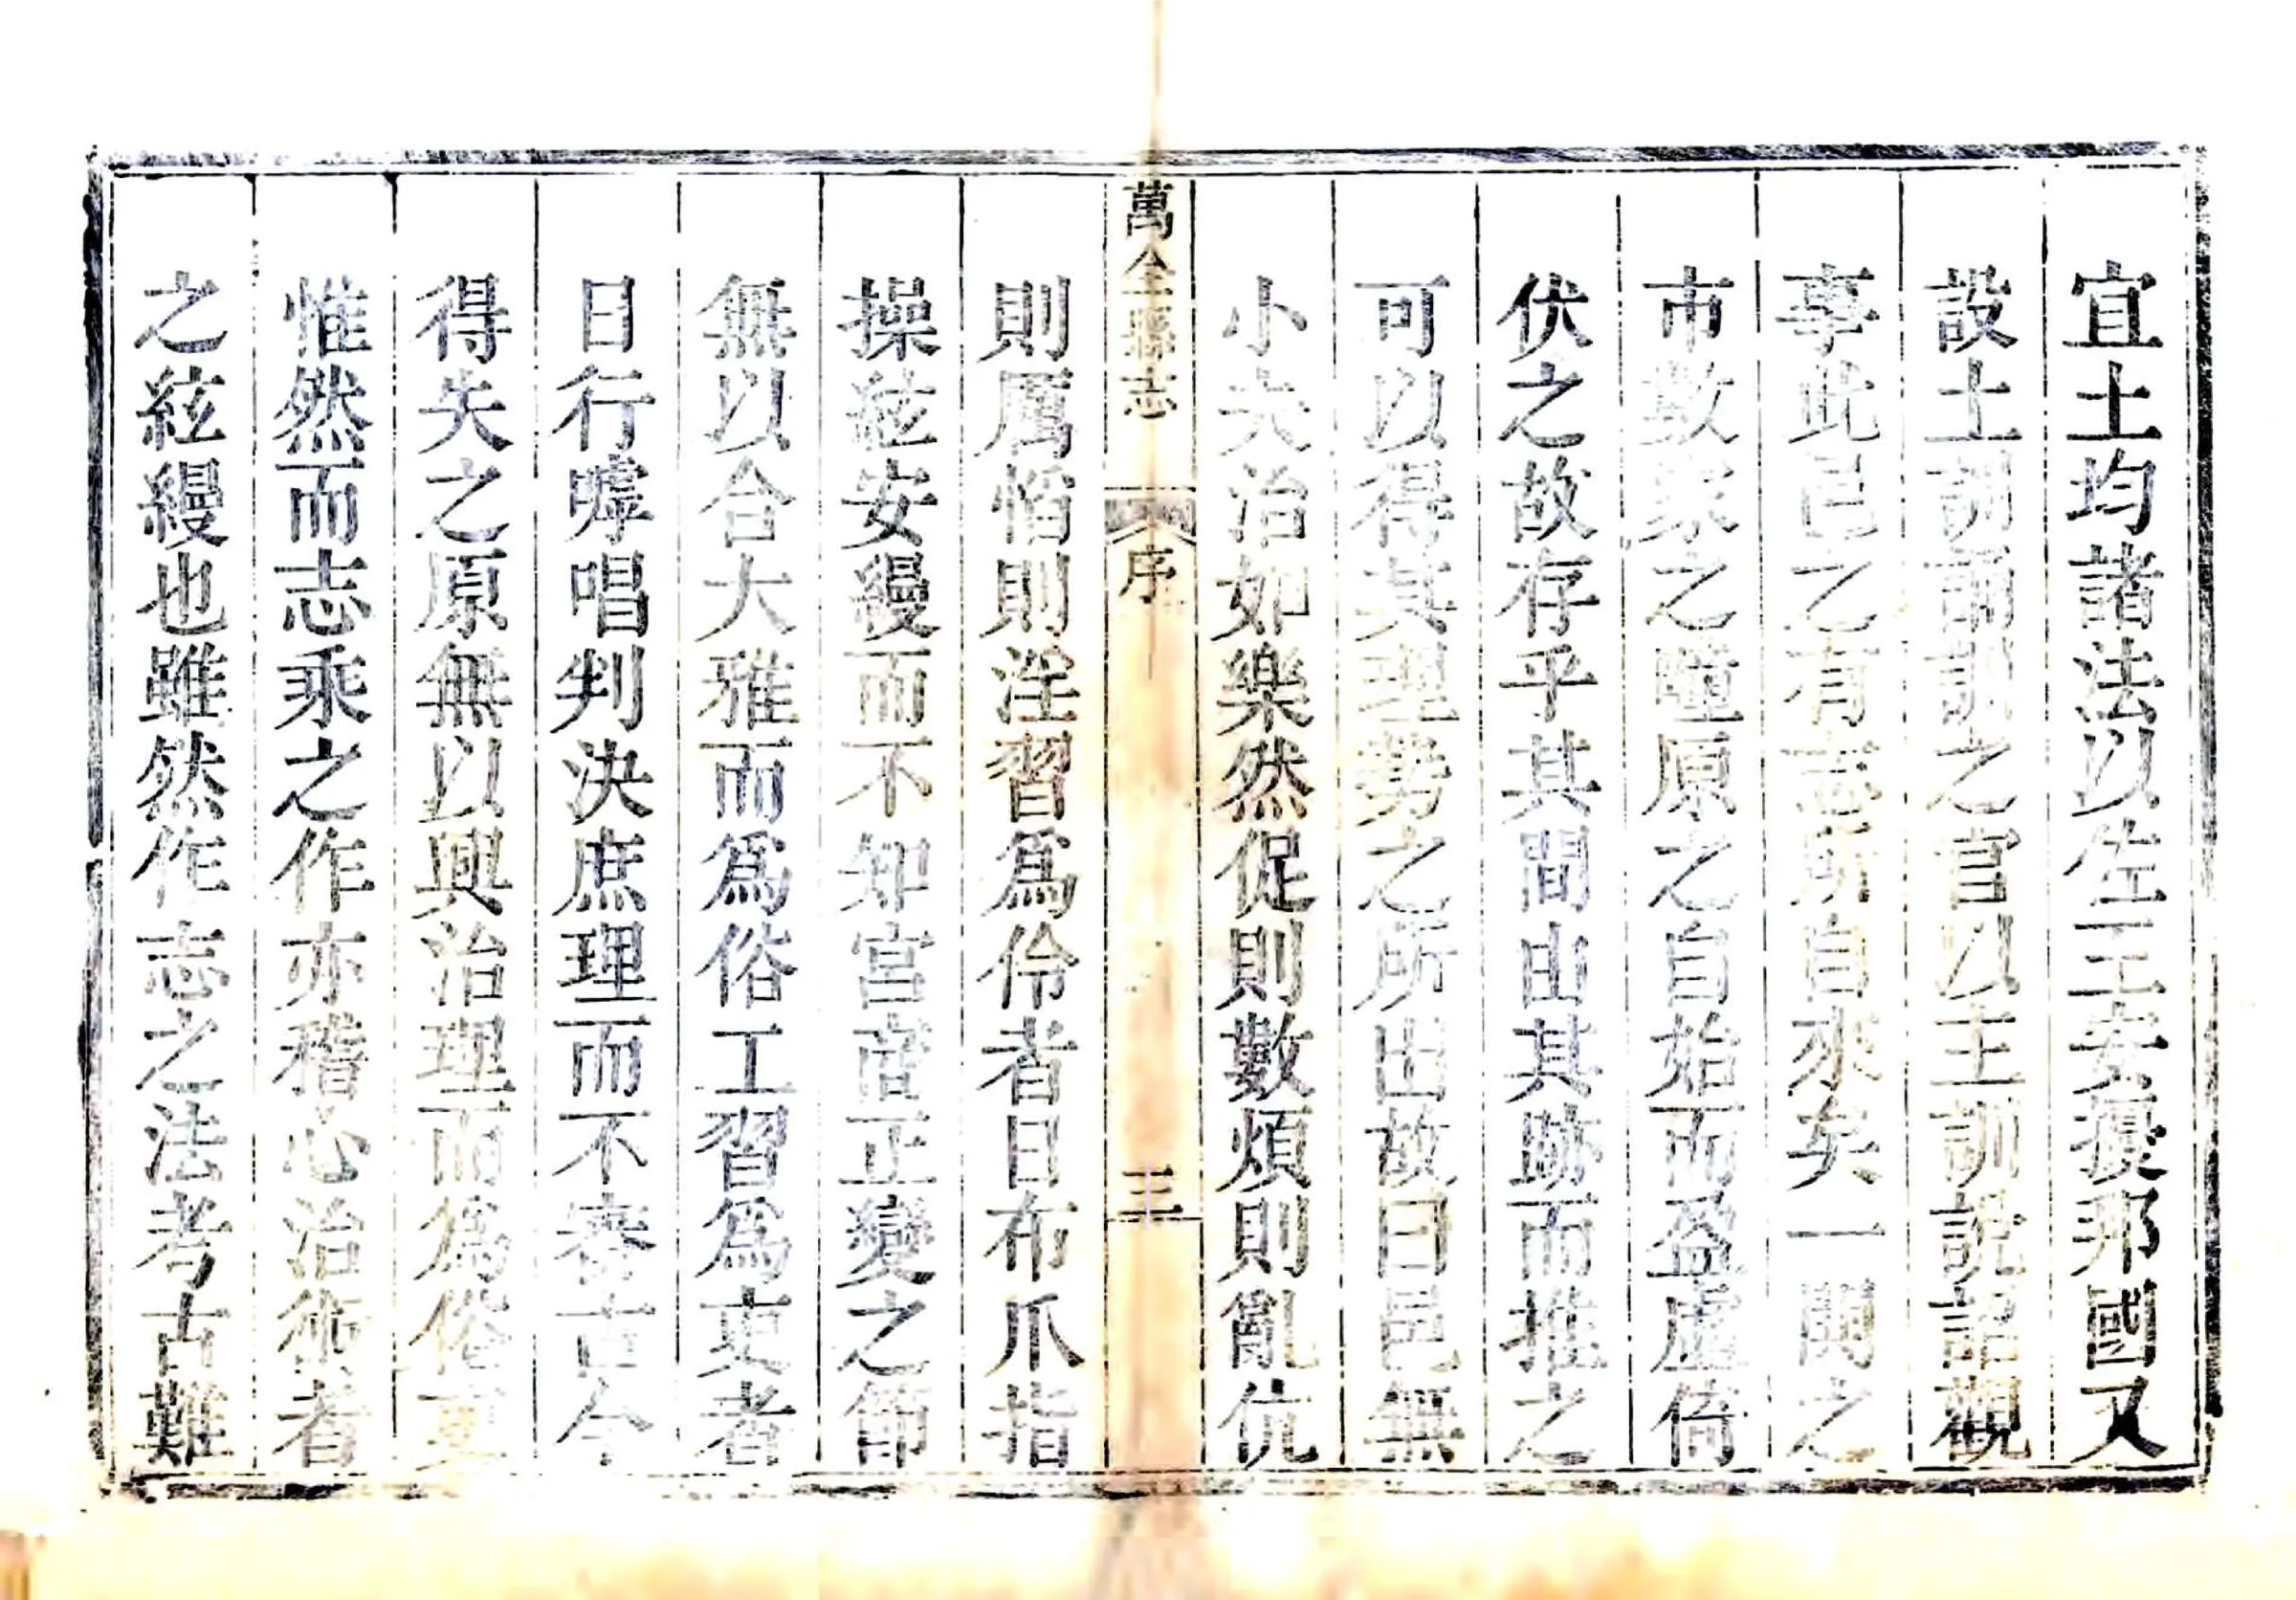 宜土均諸法以佐王安擾邦國又
設土訓誦訓之官以主訓說詔觀
事此邑乙有志所自來矣一閧之
市數家之疃原之自始而盈虛倚
伏之故存乎其間由其跡而推之
可以得其理勢之所出故曰邑無
小大治如樂然促則數煩則亂伉
萬全縣志
序
三
則厲慆則淫習爲伶者日布爪指
操絃安縵而不知宮商正變之節
無以合大雅而爲俗工習爲吏者
日行嘑唱判決庶理而不察古今
得失之原無以興治理而爲俗吏
惟然而志乘之作亦稽心治術者
之絃縵也雖然作志之法考古難